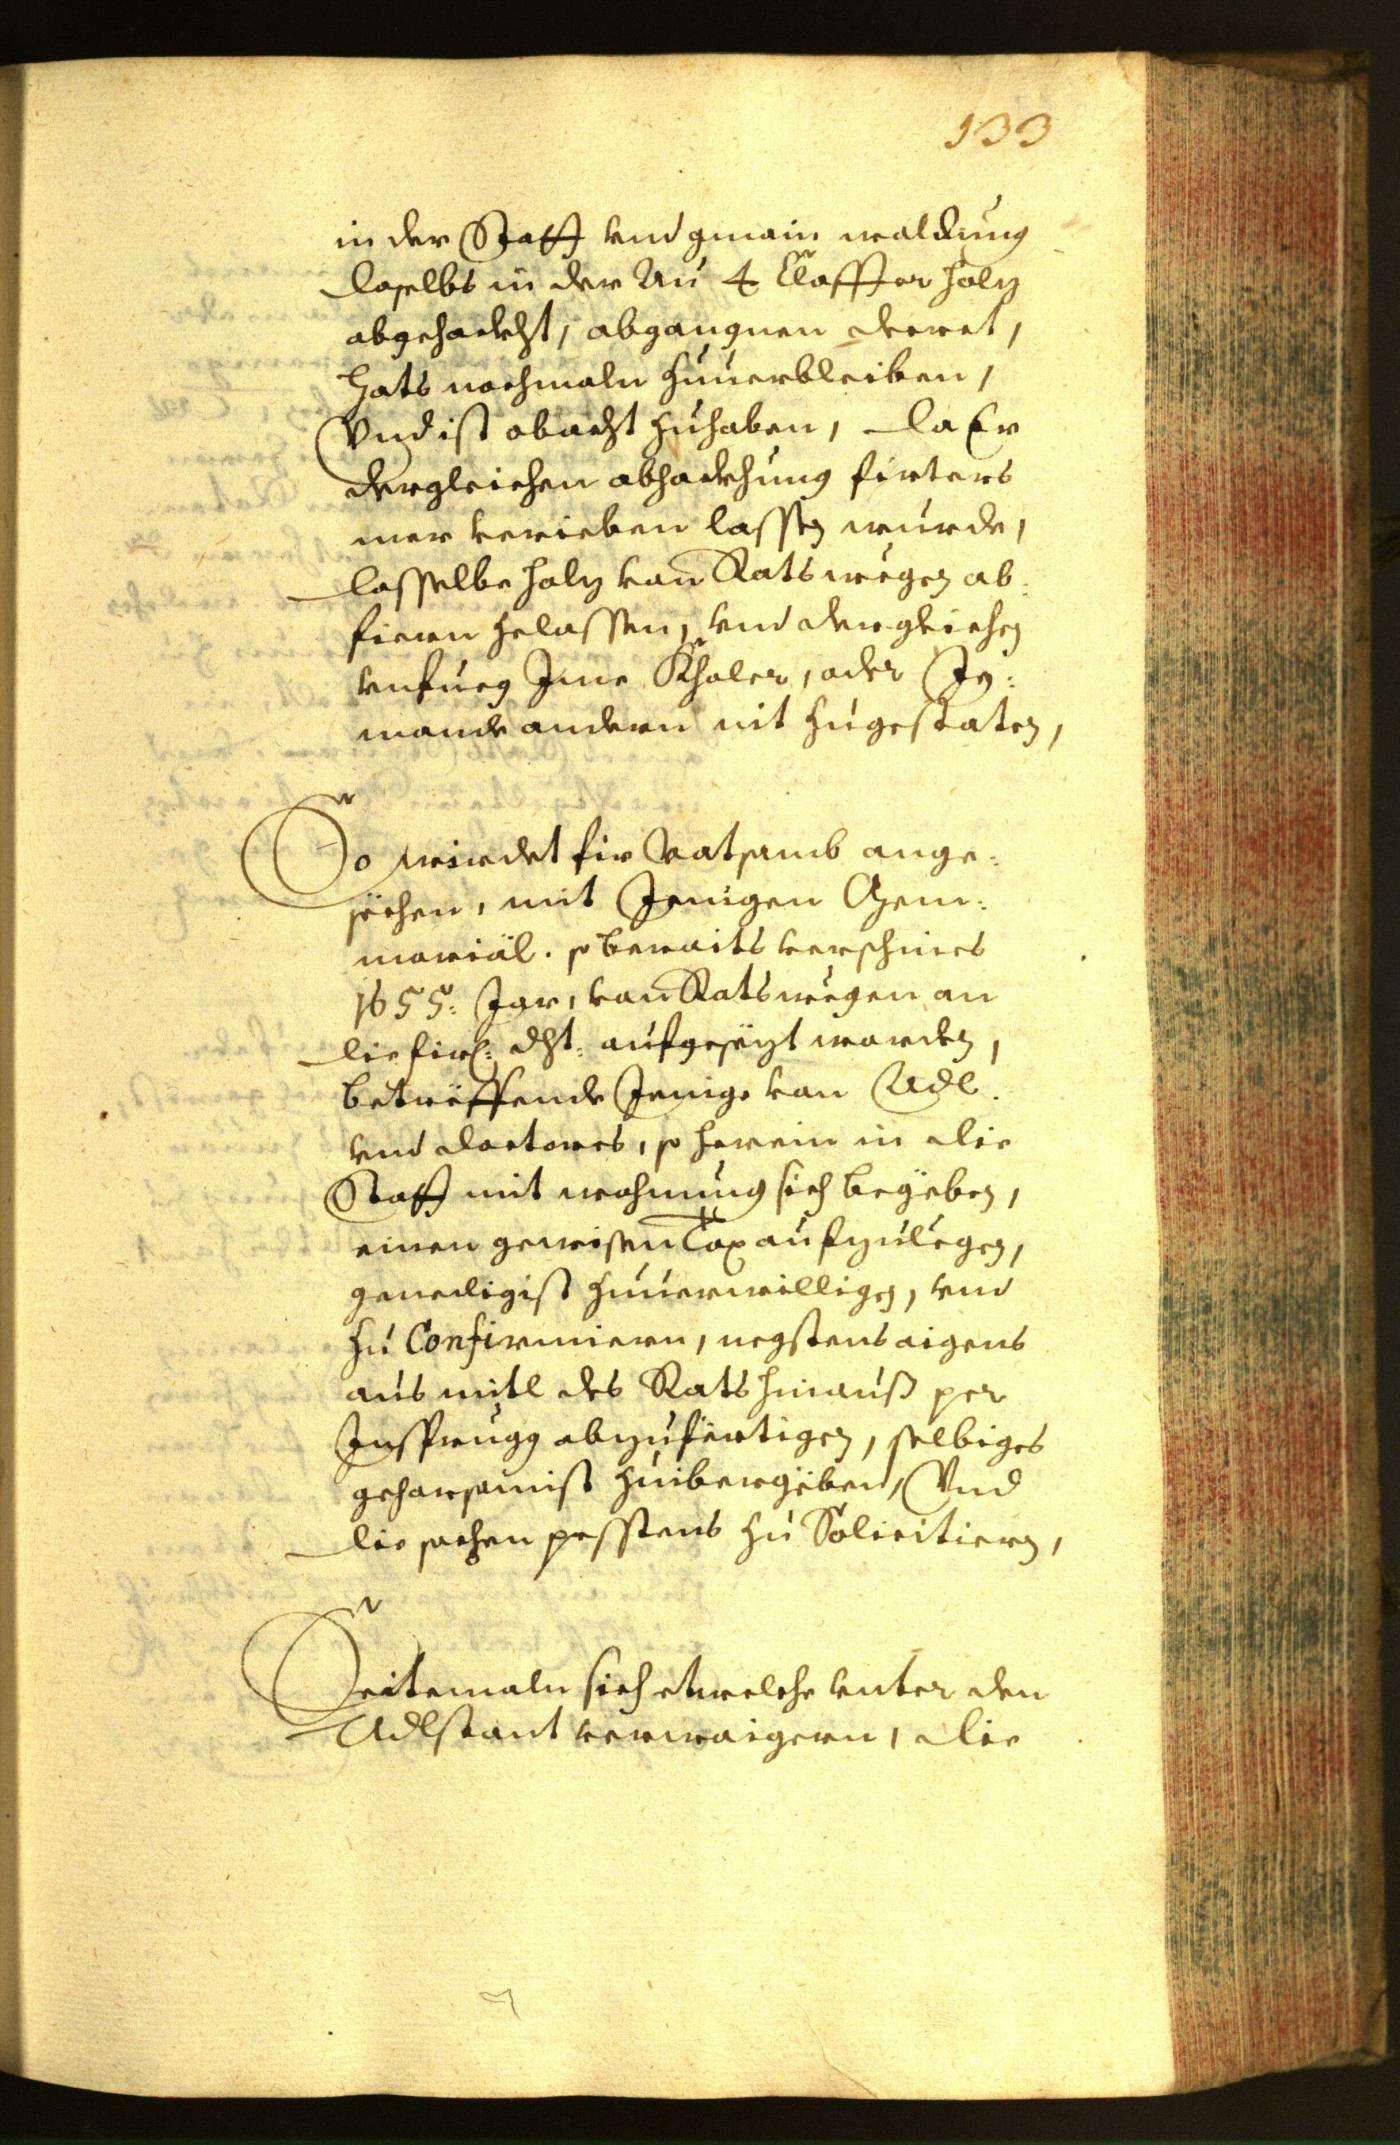 133
in der Statt vnd gmain waldung
daselbs in der Au 4 Claffter holz
abgehackht, abgangnen decret,
hats nochmaln zuuerbleiben,
Vnd ist obacht zuhaben, da Er
dergleichen abhackhung firters
mer verieben lassen wurde,
dasselbe holz von Rats wegen ab:
fieren zelassen, vnd dergleichen
vnfueg Ime Khaler, oder Je:
mande andern nit zugestaten,
So wirdet fir ratsamb ange:
sechen, mit Jenigen Gem:
morial. so beraits verschines
1655: Jar, von Rats wegen an
die firl: dht: aufgesezt worden,
betreffende Jenige von Adl.
vnd doctores, so herein in die
Statt mit wohnung sich begeben,
einen gewisen Tax aufzulegen,
genedigist zuuerwilligen, vnd
zu Confirmiern, negstens aigens
aus mitl des Rats hinauß per
Insprugg abzufertigen, selbiges
gehorsamist zuibergeben, Vnd
die sachen pesstens zu Solicitiern,
Seitemaln sich etweliche vnter den
Adlstant verwaigern, die